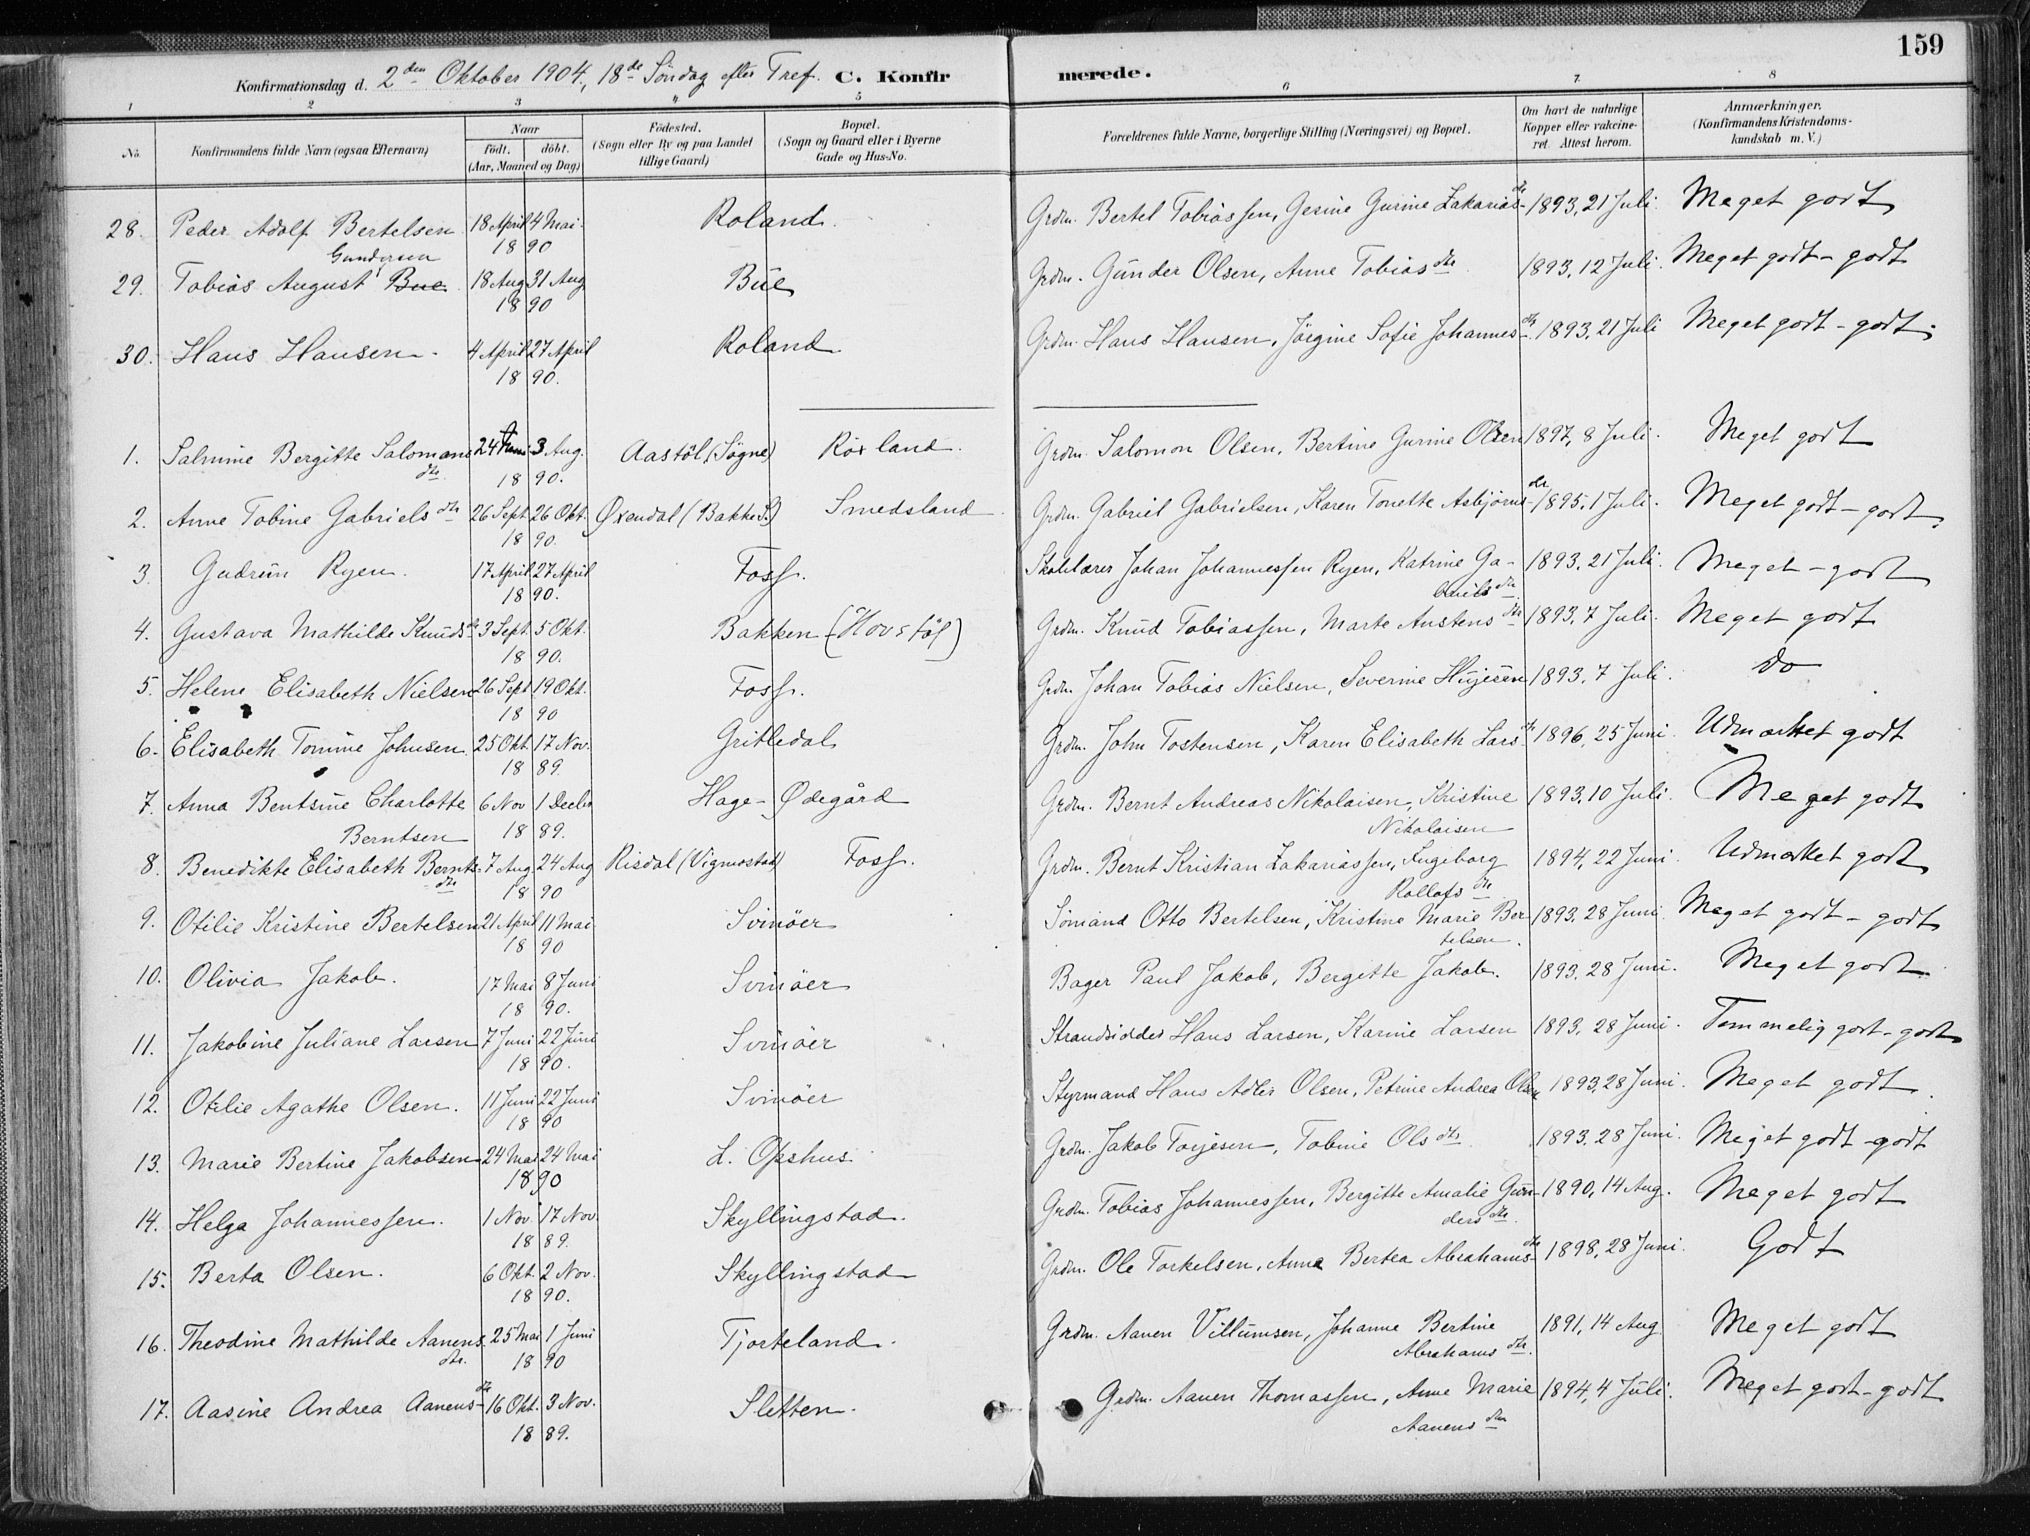 159
Konfirmationsdag d. 2den Oktober 1904, 18de Søndag efter Tref. C. Konfirmerede.
1 2 3 4 5 6 7 8
No. Konfirmandens fulde Navn (ogsaa Efternavn) Naar födt. döbt. (Aar, Maaned og Dag) Födested. (Sogn eller By og paa Landet tillige Gaard) Bopæl. (Sogn og Gaard eller i Byerne Gade og Hus-No. Forældrenes fulde Navne, borgerlige Stilling (Næringsvei) og Bopæl. Om havt de naturlige Kopper eller vakcineret. Attest herom. Anmærkninger. (Konfirmandens Kristendomskundskab m. V.)
28. Peder Adolf Bertelsen 18 April 4 Mai Roland Grdm. Bertel Tobiassen, Gesine Gurine Zakariasdtr 1893, 21 Juli. Meget godt
1890
Gundersen
29. Tobias August Bue 18 Aug 31 Aug Bue Grdm. Gunder Olsen, Anne Tobiasdtr 1893, 12 Juli. Meget godt - godt
1890
30. Hans Hansen. 4 April 27 April Roland Grdm. Hans Hansen, Jörgine Sofie Johannesdtr 1893, 21 Juli Meget godt - godt.
1890.
1. Salmine Bergitte Salomons 24 3 Aug. Aastöl, (Søgne) Röxland. Grdm. Salomon Olsen, Bertine Gurine Olsen 1897, 8 Juli. Meget godt
dtr 1890.
2. Anne Tobine Gabrielsdtr 26 Sept 26 Okt. Øxendal (Bakke S.) Smedsland Grdm. Gabriel Gabrielsen, Karen Tonette Asbjørnsdtr 1895, 1 Juli. Meget godt - godt.
1890.
3. Gudrun Ryen. 17 April 27 April Foss. Skolelærer Johan Johannessen Ryen, Katrine Ga- 1893, 21 Juli. Meget - godt
1890. brielsdtr
4. Gustava Mathilde Knudsdtr 3 Sept. 5 Okt. Bakken (Hovstöl) Grdm. Knud Tobiassen, Marte Austensdtr 1893, 7 Juli. Meget godt
1890.
5. Helene Elisabeth Nielsen 26 Sept 19 Okt. Foss. Grdm. Johan Tobias Nielsen, Severine 1893, 7 Juli. Do
1890
6. Elisabeth Tomine Johnsen 25 Okt. 17 Nov. Gritledal Grdm. John Tostensen, Karen Elisabeth Larsdtr 1896, 25 Juni. Udmærket godt
1889.
7. Anna Bentsine Charlotte 6 Nov 1 Decbr Hage-Ødegård Grdm. Bernt Andreas Nikolaisen, Kristine 1893, 10 Juli. Meget godt
Berntsen 1889. Nikolaisen
8. Benedikte Elisabeth Bernts- 7 Aug. 24 Aug Risdal (Vigmostad) Foss. Grdm. Bernt Kristian Zakariassen, Ingeborg 1894, 22 Juni. Udmærket godt
dtr 1890 Rollofsdtr
9. Otilie Kristine Bertelsen 21 April 11 Mai Svinöer Sömand Otto Bertelsen, Kristine Marie Ber- 1893, 28 Juni. Meget godt - godt
1890 telsen.
10. Olivia Jakob. 17 Mai 8 Juni Svinöer Bager Paul Jakob, Bergitte Jakob. 1893, 28 Juni. Meget godt.
1890.
11. Jakobine Juliane Larsen 7 Juni 22 Juni Svinöer Strandsidder Hans Larsen, Karine Larsen 1893, 28 Juni. Temmelig godt - godt
1890.
12. Otilie Agathe Olsen. 11 Juni 22 Juni Svinöer Styrmand Hans Adler Olsen, Petrine Andrea Olsen 1893, 28 Juni. Meget godt.
1890
13. Marie Bertine Jakobsen 24 Mai 24 Mai L. Opshus Grdm. Jakob Torjesen, Tobine Olsdtr 1893, 28 Juni. Meget godt - godt
1890
14. Helga Johannessen. 1 Nov. 17 Nov. Skyllingstad. Grdm. Tobias Johannessen, Bergitte Amalie Gun- 1890, 14 Aug. Meget godt
1889. dersdtr.
15. Berta Olsen. 6 Okt. 2 Nov. Skyllingstad Grdm. Ole Torkelsen, Anna Bertea Abrahamsdtr 1898, 28 Juni. Godt
1890.
16. Theodine Mathilde Aanens 25 Mai 1 Juni Tjorteland. Grdm. Aanen Villumsen, Johanne Bertine 1891, 14 Aug Meget godt
dtr. 1890 Abrahamsdtr.
17. Aasine Andrea Aanensdtr 16 Okt. 3 Nov. Sletten. Grdm. Aanen Thomassen, Anne Marie 1894, 4 Juli. Meget godt - godt
1889. Aanensdtr